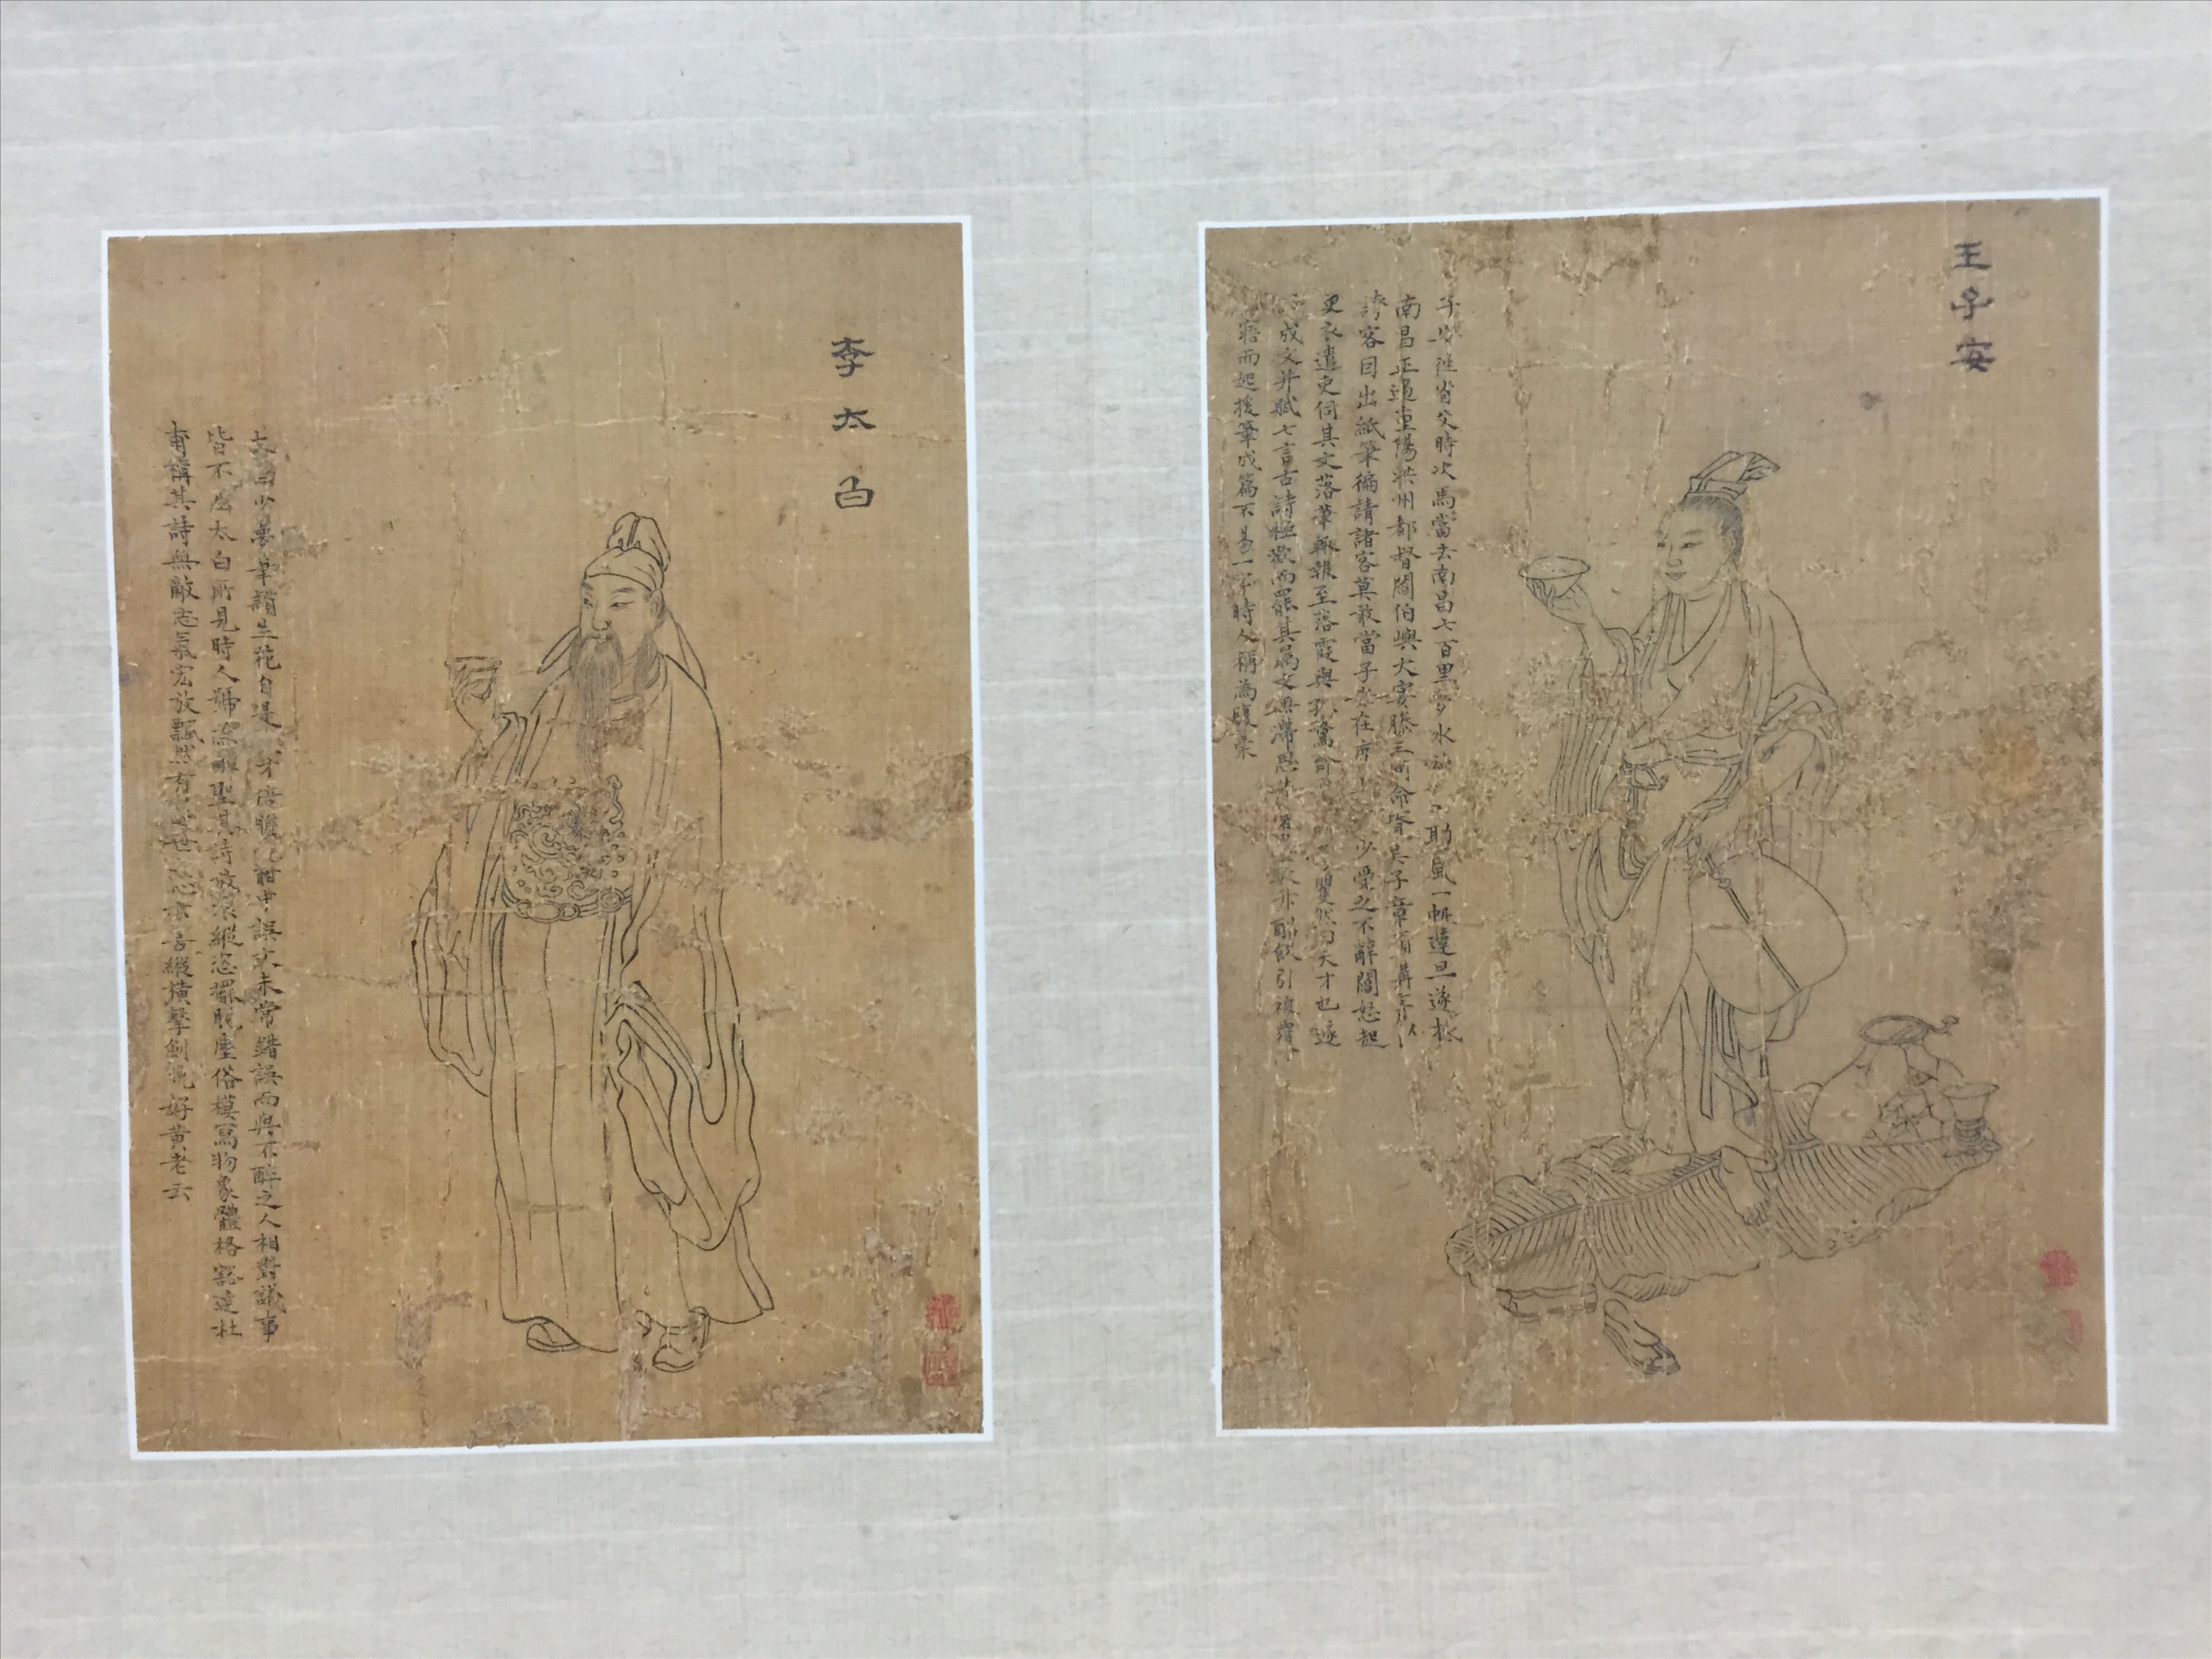 王子安
子安往省父時次馬當去南昌七百里夢水神 助風一帆達旦遂抵
南昌正遇重陽洪州都督閻伯嶼大宴滕王閣命壻 子章 構序以
誇客因出紙筆徧請諸客莫敢當子安在席 少受之不辭閻怒起
更衣遣吏伺其文落筆輒報至落霞與孤鶩 矍然曰天才也遂
成文并賦七言古詩極歡而罷其屬文 酣飲引被覆
寤而起援筆成篇不易一字時人稱為腹稾
李太白
太白少夢筆頭生花自是 才倍贍 酣中誤文未常錯誤而與不醉之人相對議事
皆不 太白所見時人號為醉聖其詩放浪縱恣擺脫塵俗模寫物象體格豁達杜
甫稱其詩無敵志氣宏放飄然有 世 心 喜縱橫擊劍 好黃老云